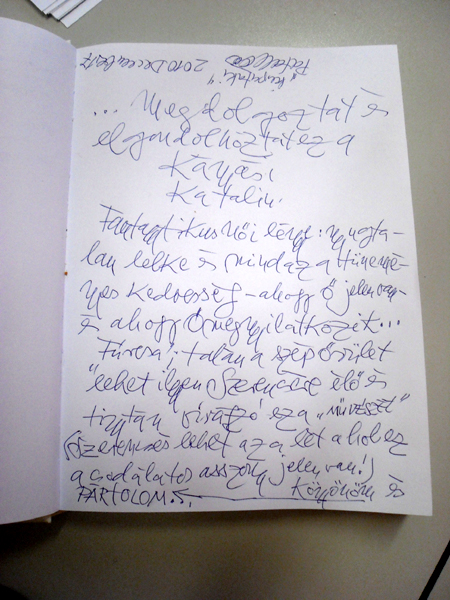 2010 December
... Megdolgoztat és
elgondolkoztat ez a
Kárpási
Katalin.
Fantasztikus női lénye: nyugta-
lan lelke és mindaz a tüneme-
nyes kedvesség – ahogy ő jelen van
és ahogy Ő megnyilatkozik...
Furcsa!: talán a szép őrület
lehet ilyen szerencsés élő és
tisztán ez a „MŰVÉSZET"
(szerencsés lehet az a lét ahol ez
a csodálatos asszony jelen van!)
PÁRTOLOM. Köszönöm és